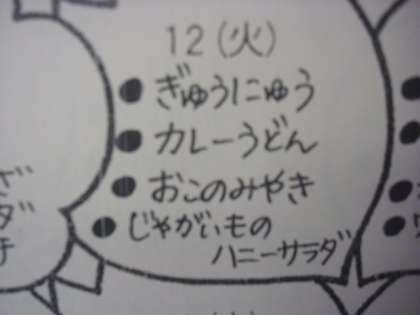 12(火)
●ぎゅうにゅう
●カレーうどん
●おこのみやき
●じゃがいもの
ハニーサラダ